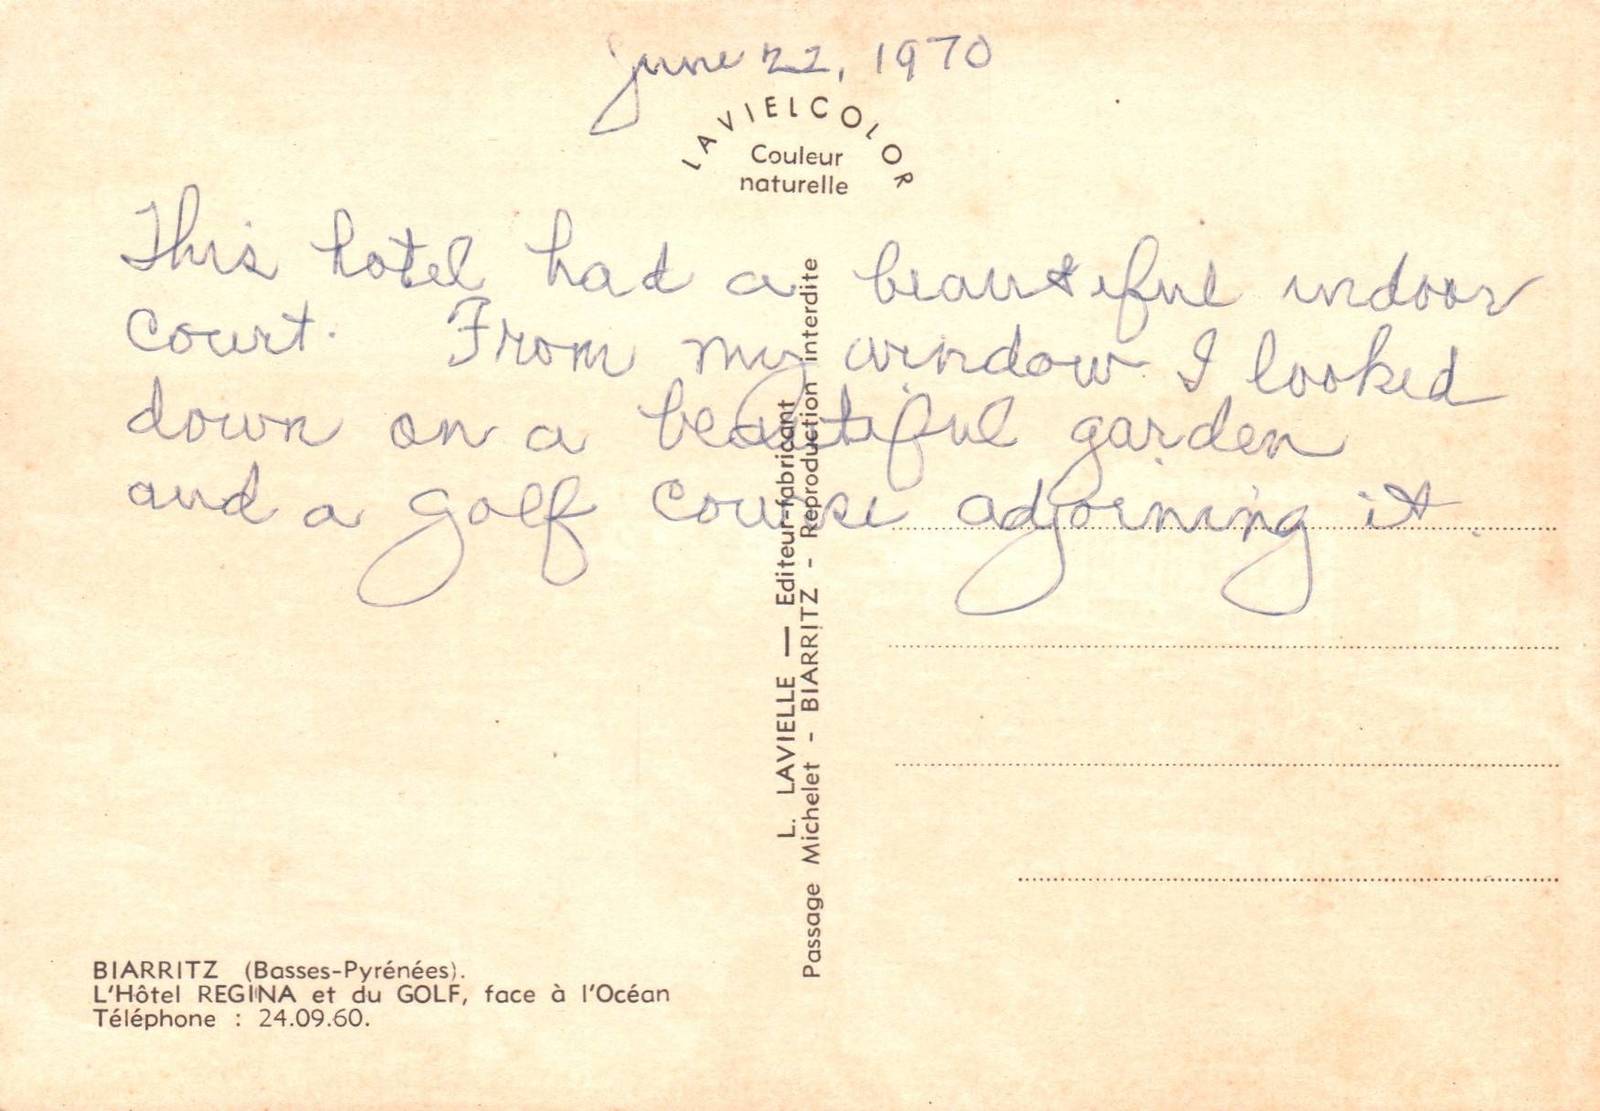 June 22, 1970
LAVIELCOLOR
Couleur
naturelle
This hotel had a beautiful indoor
court. From my window I looked
down on a beautiful garden
and a golf course adjoining it.
L. LAVIELLE — Editeur-fabricant
Passage Michelet - BIARRITZ - Reproduction interdite
BIARRITZ (Basses-Pyrénées).
L'Hôtel REGINA et du GOLF, face à l'Océan
Téléphone : 24.09.60.